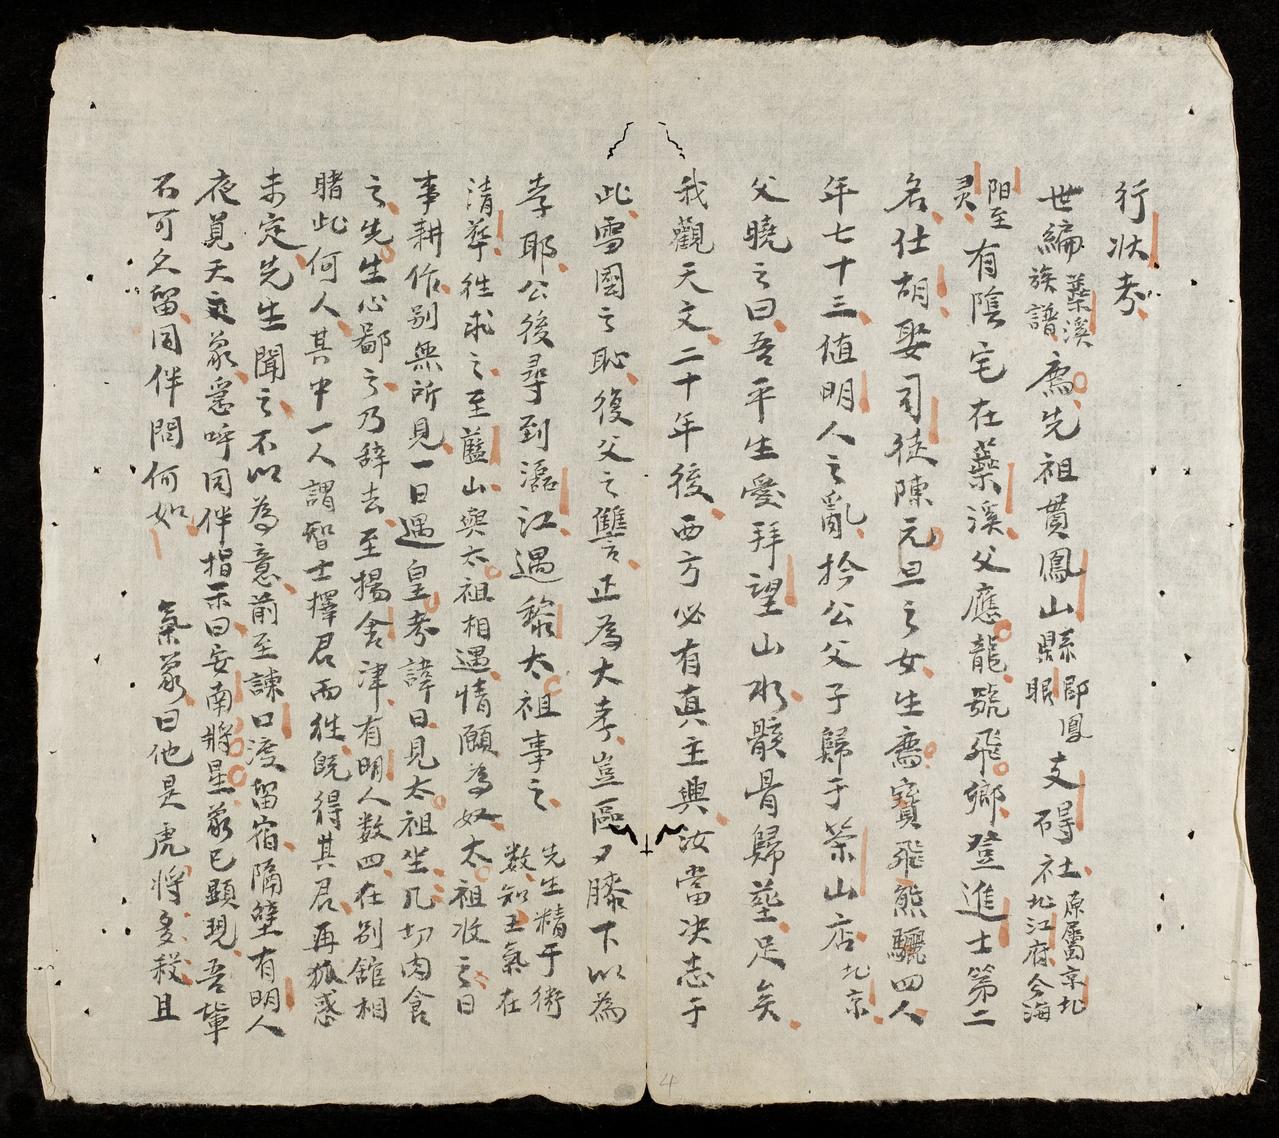 行狀考
世編蘃溪族譜廌先祖貫鳳山縣郡鳳眼支碍社原屬京北北江府今海
陽至灵有陰宅在蘃溪父應龍號飛鄉登進士第二
名仕胡娶司徒陳元旦之女生廌寶飛熊驪四人
年七十三值明人之亂拎公父子歸于荣山店北京
父曉之曰吾平生愛拜望山水骸骨歸塟足矣
我觀天文二十年後西方必有真主興汝當決志于
此雪國之恥復父之讐正為大孝豈區々膝下以為
孝耶公後尋到瀘江遇黎太祖事之先生精于術数知王氣在
清華徃求之至藍山與太祖相遇情願為奴太祖收之日
事耕作别無所見一日遇皇考諱日見太祖坐凡切肉食
之先生心鄙之乃辞去至揚舍津有明人数四在别舘相
賭此何人其中一人謂智士擇君而徃既得其君再狐惑
未定先生聞之不以為意前至諫口渡留宿隔壁有明人
夜見天文象急呼同伴指示曰安南將星象已顯現吾軰
不可久留同伴問何如氣象曰他是虎將多殺且